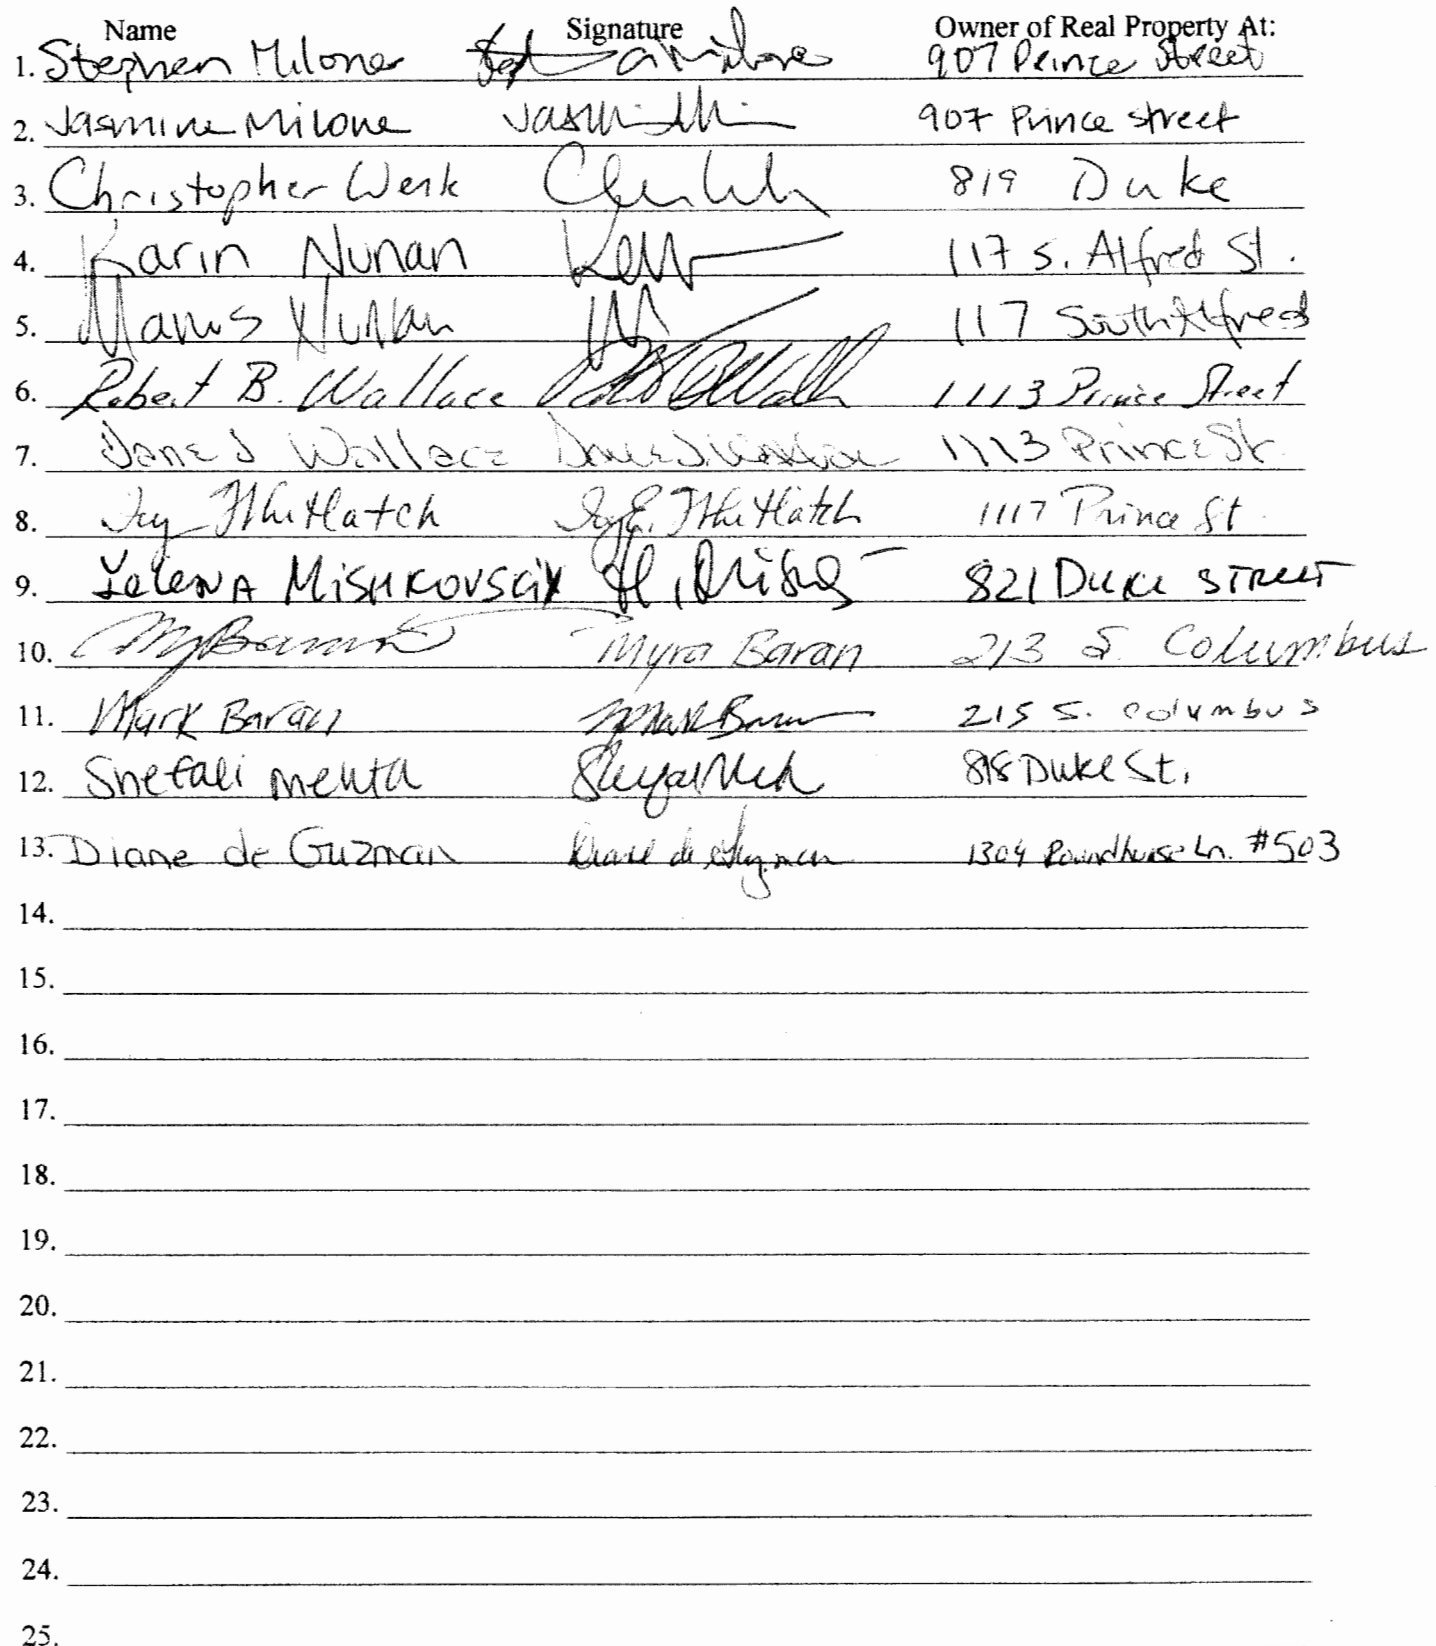 Name Signature Owner of Real Property At:
1. Stephen Milone 907 Prince Street
2. Jasmine Milone 907 Prince street
3. Christopher Werk 819 Duke
4. Karin Nunan 117 S. Alfred St.
5. Nunan 117 South Alfred
6. Robert B. Wallace 1113 Prince Street
7. Jane J Wallace 1113 Prince St.
8. Ivy Whitlatch Ivy E. Whitlatch 1117 Prince St.
9. 821 Duke Street
10. Myra Baran 213 S. Columbus
11. Mark Baran Mark Baran 215 S. Columbus
12. Shefali Mehta 818 Duke St.
13. Diane de Guzman Diane de Guzman 1304 Roundhouse Ln. #503
14.
15.
16.
17.
18.
19.
20.
21.
22.
23.
24.
25.